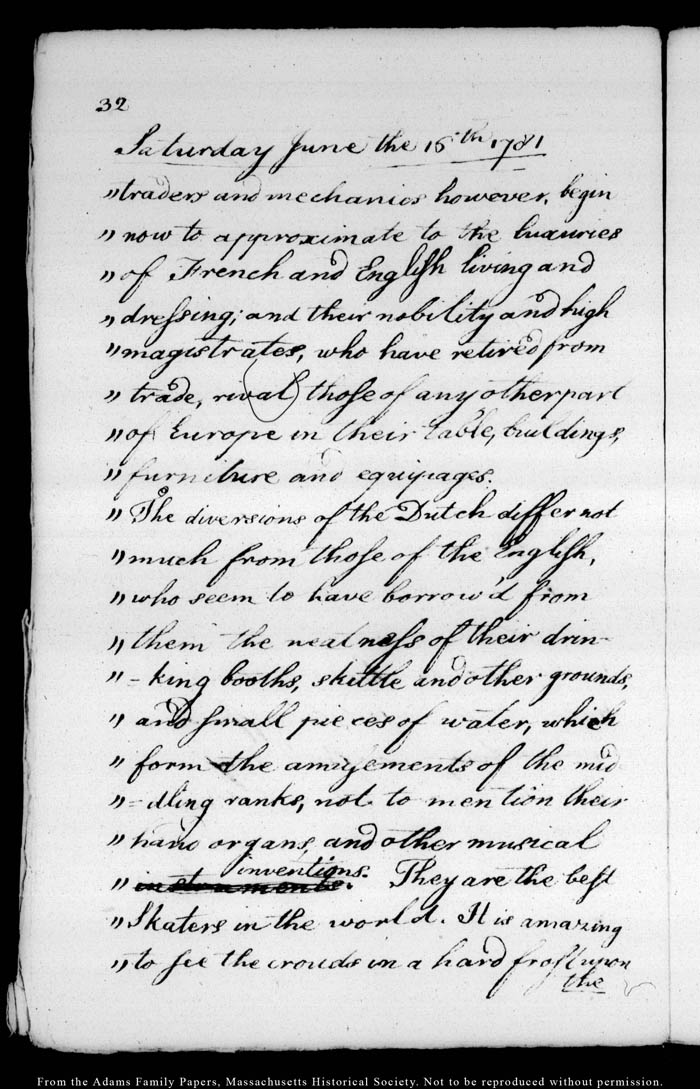 32
Saturday June the 16th 1781
" traders and mechanics however, begin
" now to approximate to the luxuries
" of French and English living and
" dressing; and their nobility and high
" magistrates, who have retired from
" trade, rival those of any other part
" of Europe in their table, buildings,
" furniture and equipages.
" The diversions of the Dutch differ not
" much from those of the English,
" who seem to have borrow'd from
" them the neatness of their drin-
" - king booths, skittle and other grounds,
" and small pieces of water, which
" form the amusements of the mid
" = dling ranks, not to mention their
" hand organs, and other musical
inventions.
" instruments. They are the best
" Skaters in the world. It is amazing
" to see the crouds in a hard frost upon
the
From the Adams Family Papers, Massachusetts Historical Society. Not to be reproduced without permission.